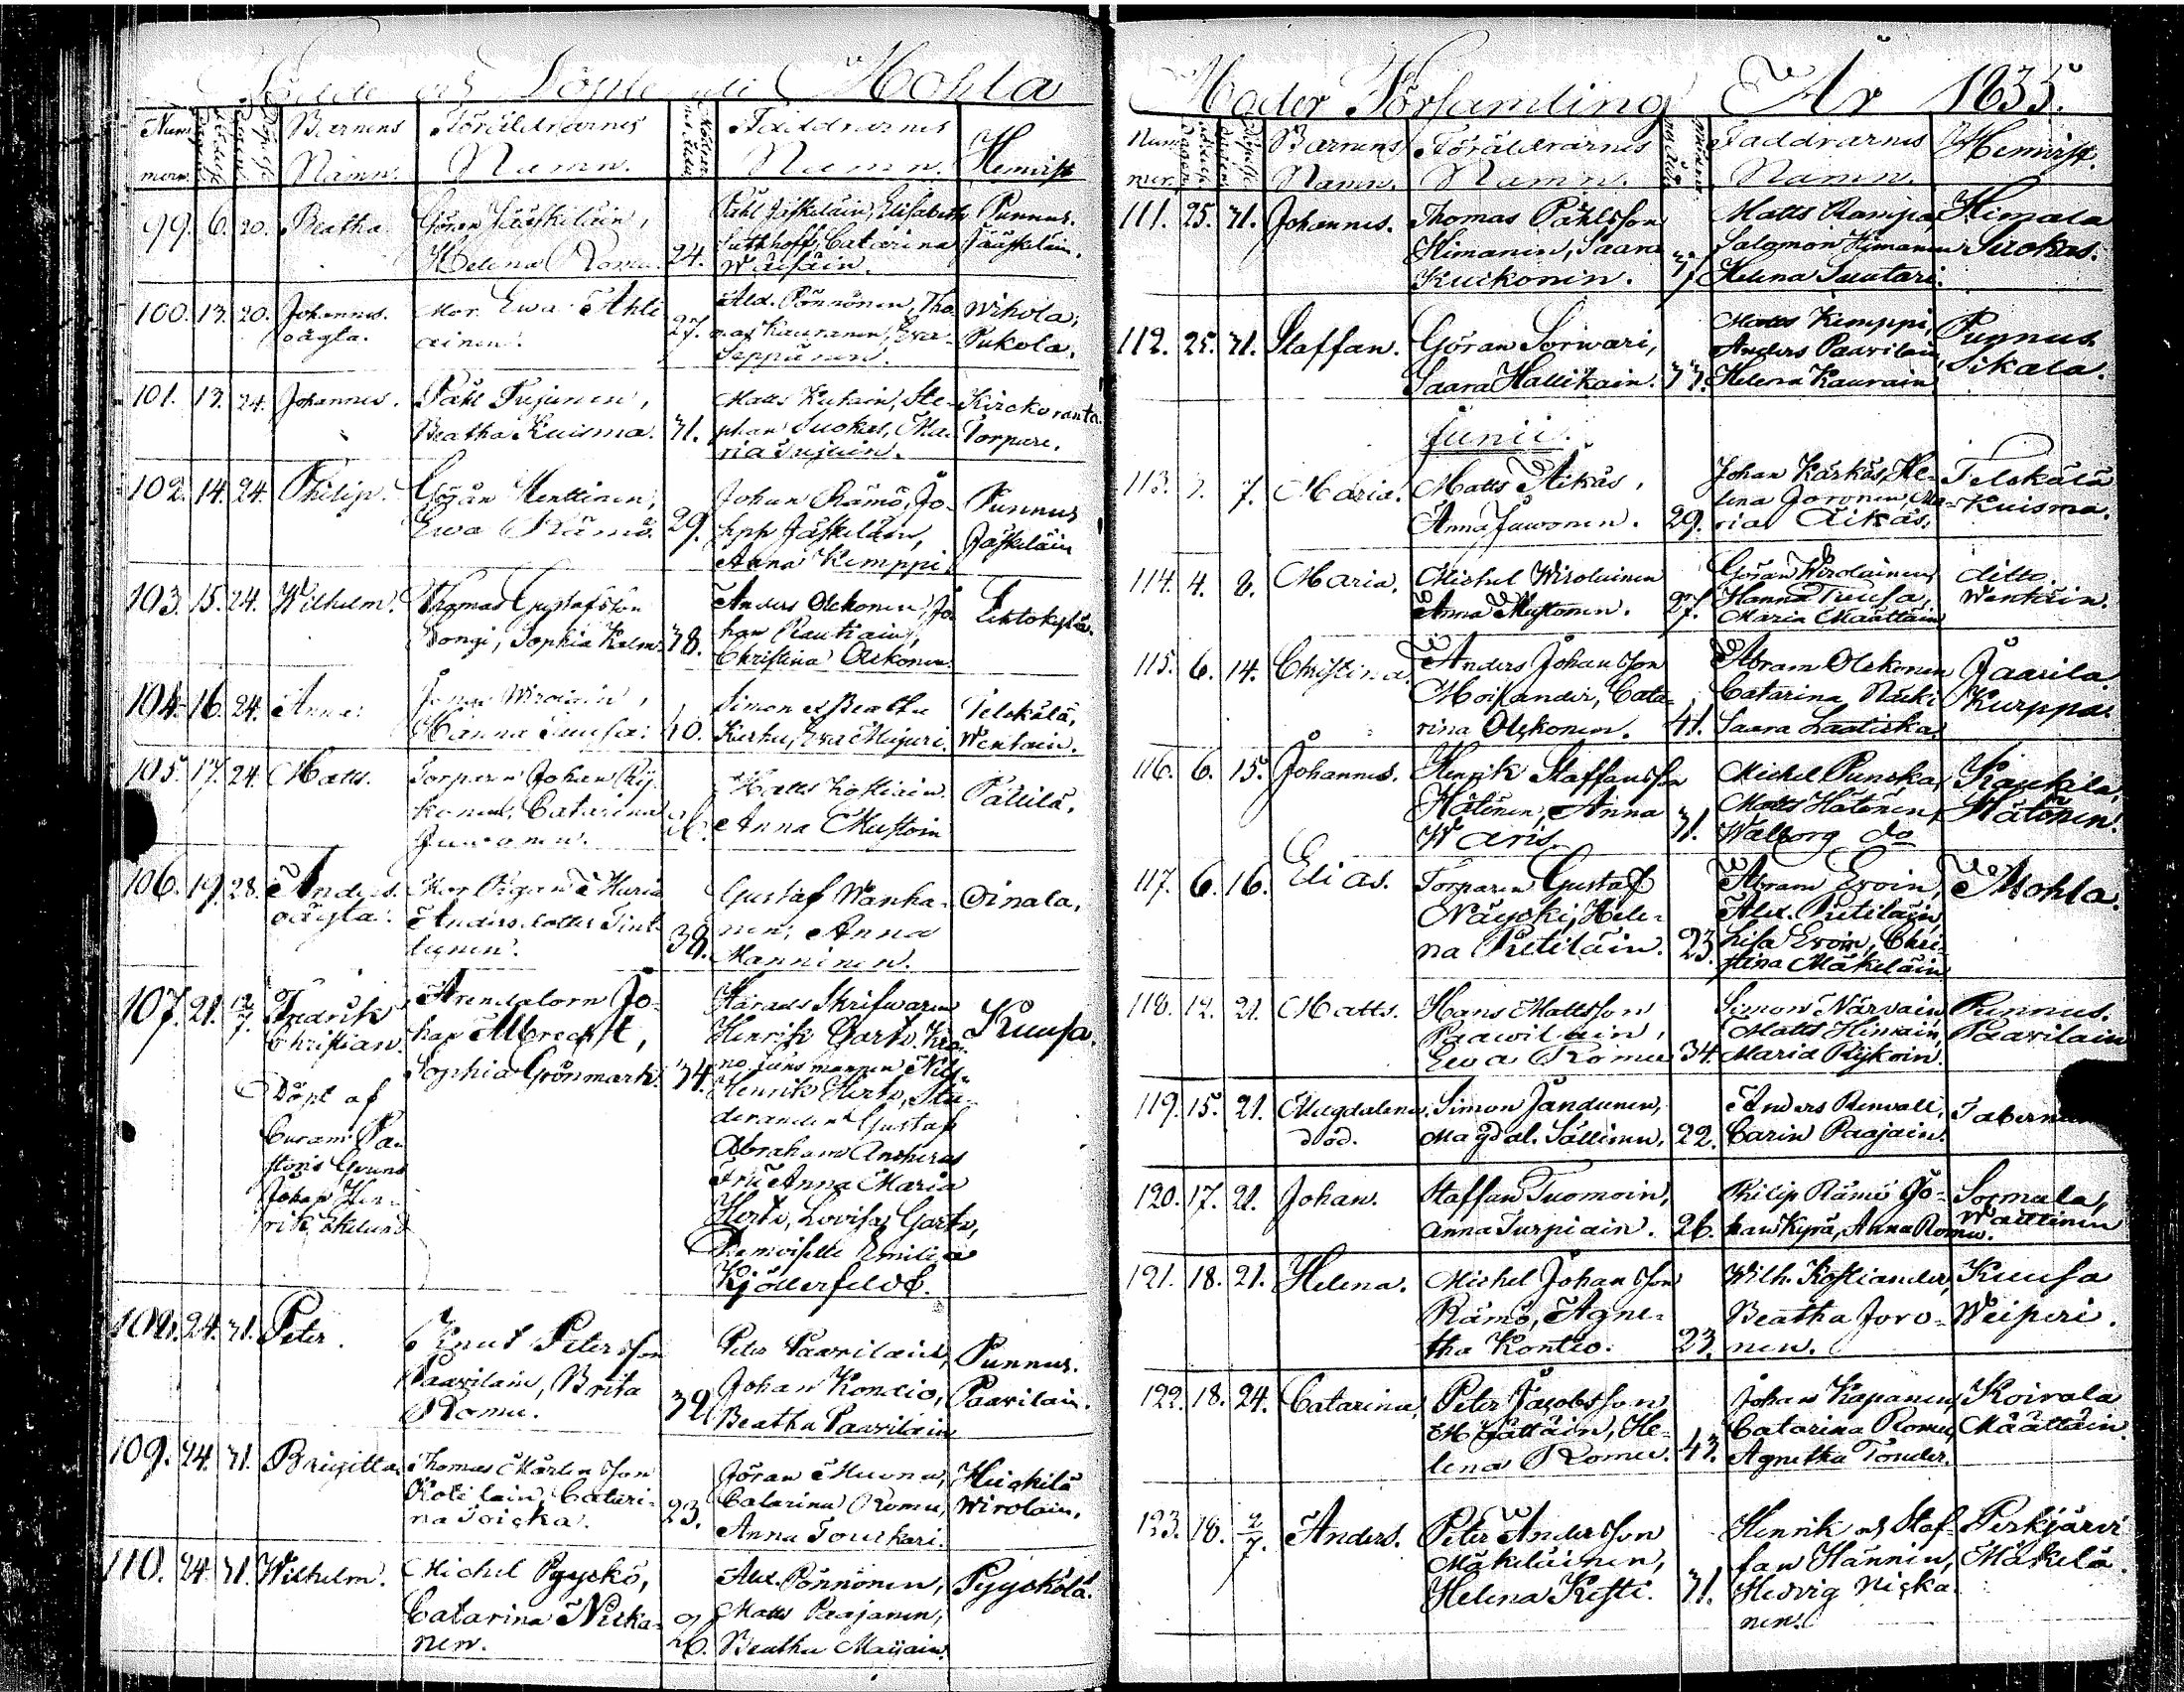 Födde och Döpte uti Mohla
Num
mern.
Barnens
Namn.
Föräldrarnes
Namn.
Faddrarnes
Namn.
Hemvist
99. 6. 20. Beatha
Göran Jääskeläin,
Helena Romu. 24.
Påhl Jäskeläin, Elisabeth
Catarina
Wäisäin.
Punnus.
Jääskeläin.
100. 13. 20. Johannes.
oägta.
Mor. Ewa Ahti
ainen. 27.
Alex. Pönnönen, Tho
mas Kauranen, Ewa
Seppänen.
Wihola,
Pukola.
101. 13. 24. Johannes.
Påhl Tujunen,
Beatha Kuisma. 31.
Matts Kutain, Ste-
phan Suokas, Ma-
ria Tujuin.
Kirckoranta
Torpare.
102. 14. 24. Philip.
Göran Henttinen,
Ewa Rämö. 29.
Johan Rämö, Jo-
seph Jäskeläin,
Anna Kemppi
Punnus
Jäskeläin
103. 15. 24. Wilhelm.
Thomas Gustafsson
Pongi, Sophia Kalm 38.
Anders Olckonen, Jo
han Rautiain,
Christina Olckonen.
Lehtokylä.
104. 16. 24. Anna.
Wirolain,
Hanna Tuusa. 40.
Simon & Beatha
Kerhu, Eva Mujuri.
Telckälä,
Wentain.
105. 17. 24. Matts.
Torparen Johan Ryj
konen, Catarina
Juwonen.
Matts Kostiain.
Anna Mustoin
Pällilä.
106. 19. 28. Anders.
oägta.
Mor Pigan Maria
Andersdotter Tint
tunen. 38.
Gustaf Wanha-
nen, Anna
Manninen.
Oinala,
107. 21. 12/7 Fredrik
Christian.
Döpt af
Curam Pa-
storis Gerens
Johan Hen-
rik Ekelund
Arendatorn Jo-
han Albrecht,
Sophia Grönmark. 34.
Härads Skrifwaren
Henrik Gartz, Kro-
no Länsmannen Nils
Henrik Hertz, Stu-
deranden Gustaf
Abraham Ancherus
Fru Anna Maria
Hertz, Lovisa Gartz,
Demoiselle Emilia
Kjöllerfeldt.
Kuusa.
108. 24. 31. Peter.
Knut Petersson
Paavilain, Brita
Romu. 32.
Peter Paavilain,
Johan Kondio,
Beatha Paavilain
Punnus.
Paavilain.
109. 24. 31. Brigitta.
Thomas Mårtensson
Kotilain, Catari-
na Toicka. 23.
Jöran Muona,
Catarina Romu,
Anna Tourkari.
Heickilä
Wirolain.
110. 24. 31. Wilhelm.
Michel Pyyckö,
Catarina Nicka-
nen. 26.
Alex. Pönnönen,
Matts Paajanen,
Beatha Maijain.
Pyyckölä.
Moder Församling År 1835.
Num
mer.
Barnens
Namn.
Föräldrarnes
Namn.
Faddrarnes
Namn.
Hemvist.
111. 25. 31. Johannes.
Thomas Påhlsson
Himanen, Saara
Kuikonin. 37
Matts Rampa,
Salomon Himanen
Helena Tuutari.
Himala
Suokas.
112. 25. 31. Staffan.
Göran Sorwari,
Saara Hallikain. 33.
Matts Kemppi,
Anders Paavilain,
Helena Kaurain
Punnus
Sikala.
Junii.
113. 3. 7. Maria.
Matts Äikäs,
Anna Juwonen. 29.
Johan Kärkäs, He-
lena Joronen, Ma-
ria Äikäs.
Telckälä
Kuisma.
114. 4. 8. Maria.
Michel Wirolainen
Anna Mustonen. 27.
Göran Wirolainen,
Hanna Tuusa,
Maria Määttäin
ditto.
Wentäin.
115. 6. 14. Christina.
Anders Johansson
Moisander, Cata-
rina Olckonen. 41.
Abram Olckonen
Catarina Näcki
Saara Laaticka
Jaarila.
Kurppa.
116. 6. 15. Johannes.
Henrik Staffansson
Hätönen, Anna
Waris. 31.
Michel Punckas,
Matts Hätönen,
Walborg do
Kauckila,
Hätönen.
117. 6. 16. Elias.
Torparen Gustaf
Näycki, Hele-
na Pietiläin. 23.
Abram Evoin,
Alex. Pietiläin,
Lisa Evoin, Chri-
stina Mäkeläin
Mohla.
118. 12. 21. Matts.
Hans Mattsson
Paavilain,
Ewa Romu 34.
Simon Närvain
Matts Himain,
Maria Ryjkoin.
Punnus.
Paavilain
119. 15. 21. Magdalena.
död.
Simon Jandunen,
Magdal. Sällinen. 22.
Anders Renvall,
Carin Paajain.
120. 17. 21. Johan.
Staffan Tuomoin,
Anna Turpiain. 26.
Philip Rämö, Jo-
han Kyrä, Anna Romu.
Sormula,
Wättinen
121. 18. 21. Helena.
Michel Johansson
Rämö, Agne-
tha Kontio. 23.
Wilh. Kostiander,
Beatha Joro-
nen.
Kuusa
Weiperi.
122. 18. 24. Catarina.
Peter Jacobsson
Määttäin, He-
lena Romu. 43.
Johan Kapanen,
Catarina Romu,
Agnetha Tonder.
Koirala
Määttäin.
123. 18. 2/7. Anders.
Peter Andersson
Mäkeläinen,
Helena Kesti. 31.
Henrik och Staf-
fan Hännin,
Hedvig Nicka
nen.
Perkjärvi
Mäkelä.